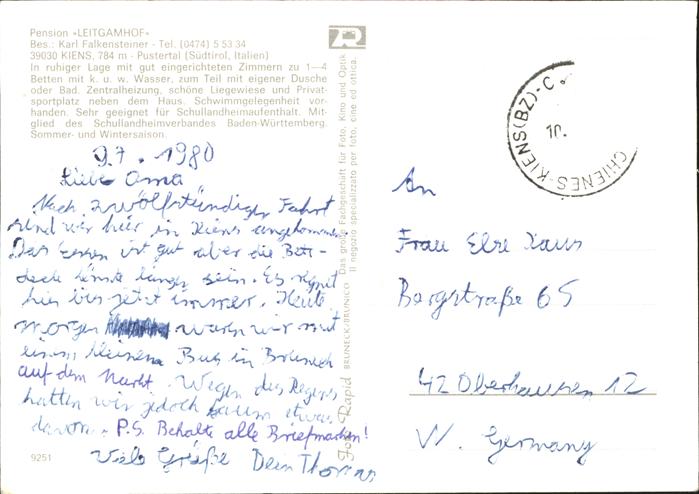 Pension «LEITGAMHOF»
Bes.: Karl Falkensteiner - Tel. (0474) 5 53 34
39030 KIENS, 784 m - Pustertal (Südtirol, Italien)
In ruhiger Lage mit gut eingerichteten Zimmern zu 1—4
Betten mit k. u. w. Wasser, zum Teil mit eigener Dusche
oder Bad. Zentralheizung, schöne Liegewiese und Privat-
sportplatz neben dem Haus. Schwimmgelegenheit vor-
handen. Sehr geeignet für Schullandheimaufenthalt. Mit-
glied des Schullandheimverbandes Baden-Württemberg.
Sommer- und Wintersaison.
9.7.1980
Liebe Oma
Nach zwölfstündiger Fahrt
sind wir hier in Kiens angekommen.
Das Essen ist gut aber die Bett-
decke könnte länger sein. Es regnet
hier bis jetzt immer. Heute
morgen waren wir mit
einem kleinen Bus in Bruneck
auf dem Markt. Wegen des Regens
hatten wir jedoch kaum etwas
davon. P.S. Behalte alle Briefmarken!
Viele Grüße Dein Thomas
9251
Foto Rapid BRUNECK/BRUNICO Das große Fachgeschäft für Foto, Kino und Optik
Il negozio specializzato per foto, cine ed ottica.
CHIENES-KIENS(BZ)-C.
10.
An
Frau Else
Bergstraße 65
42 Oberhausen 12
W. Germany